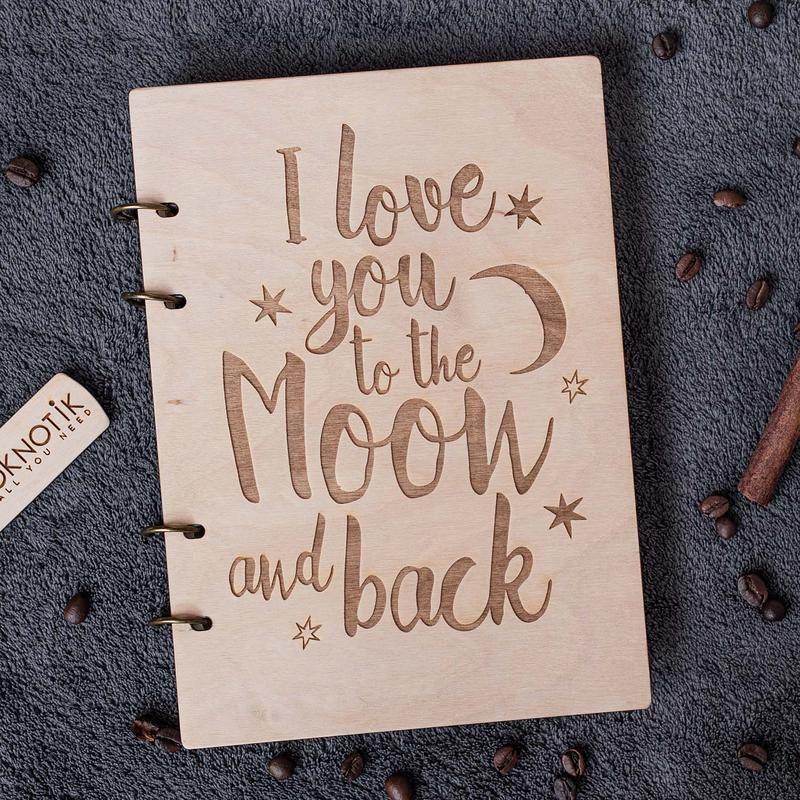 I love
you
to the
Moon
and back
OKNOTIK
ALL YOU NEED